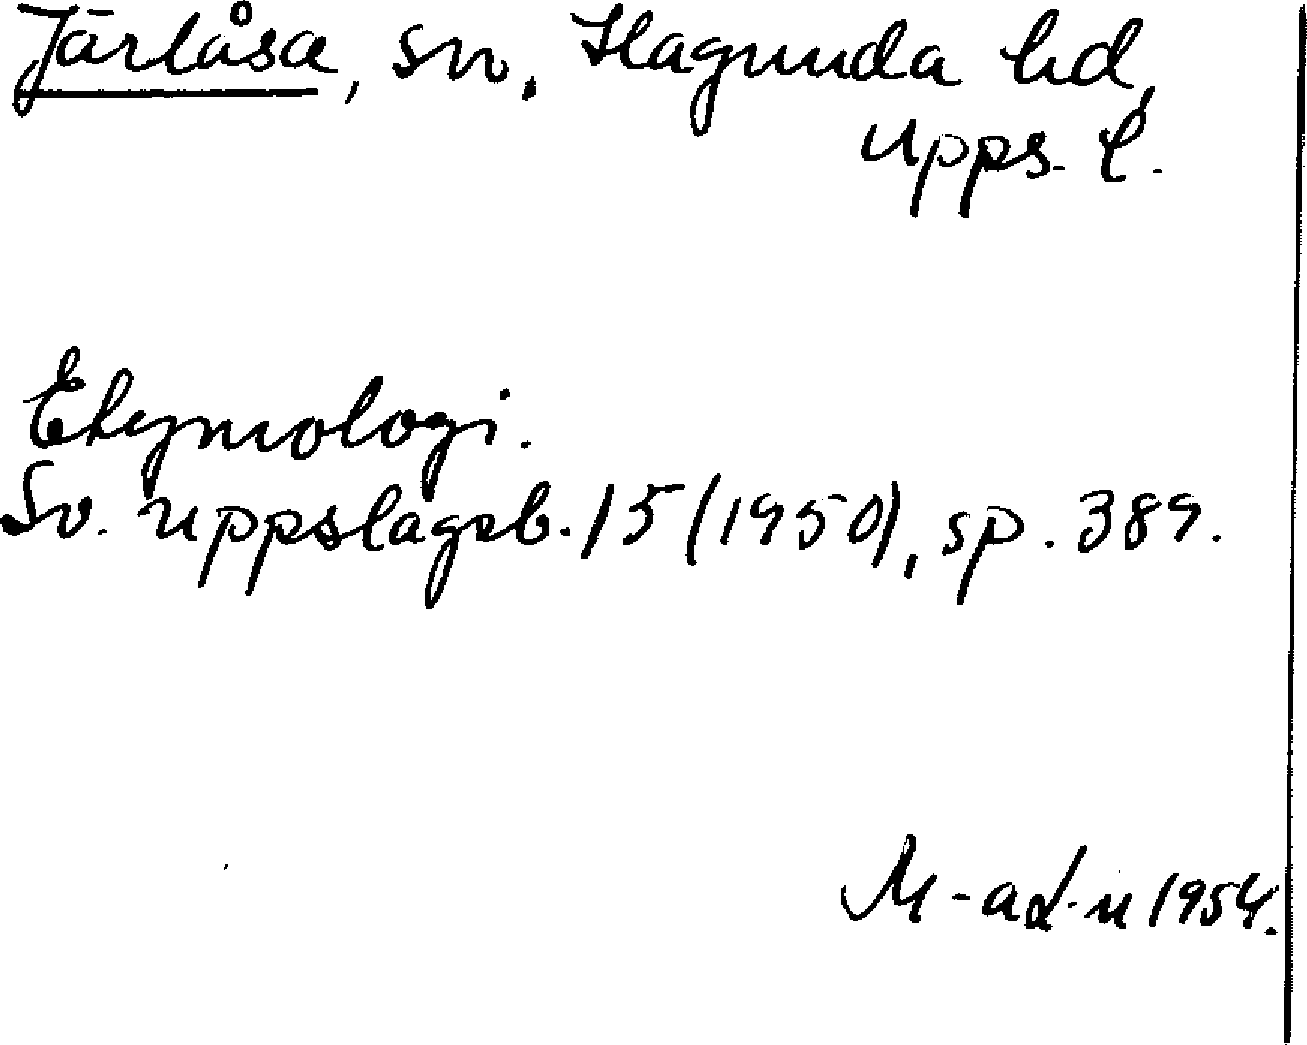 Järlåsa, sn, Hagunda hd,
Upps. l.
Etymologi.
Sv. uppslagsb. 15 (1950), sp. 389.
M-ad-n 1954.